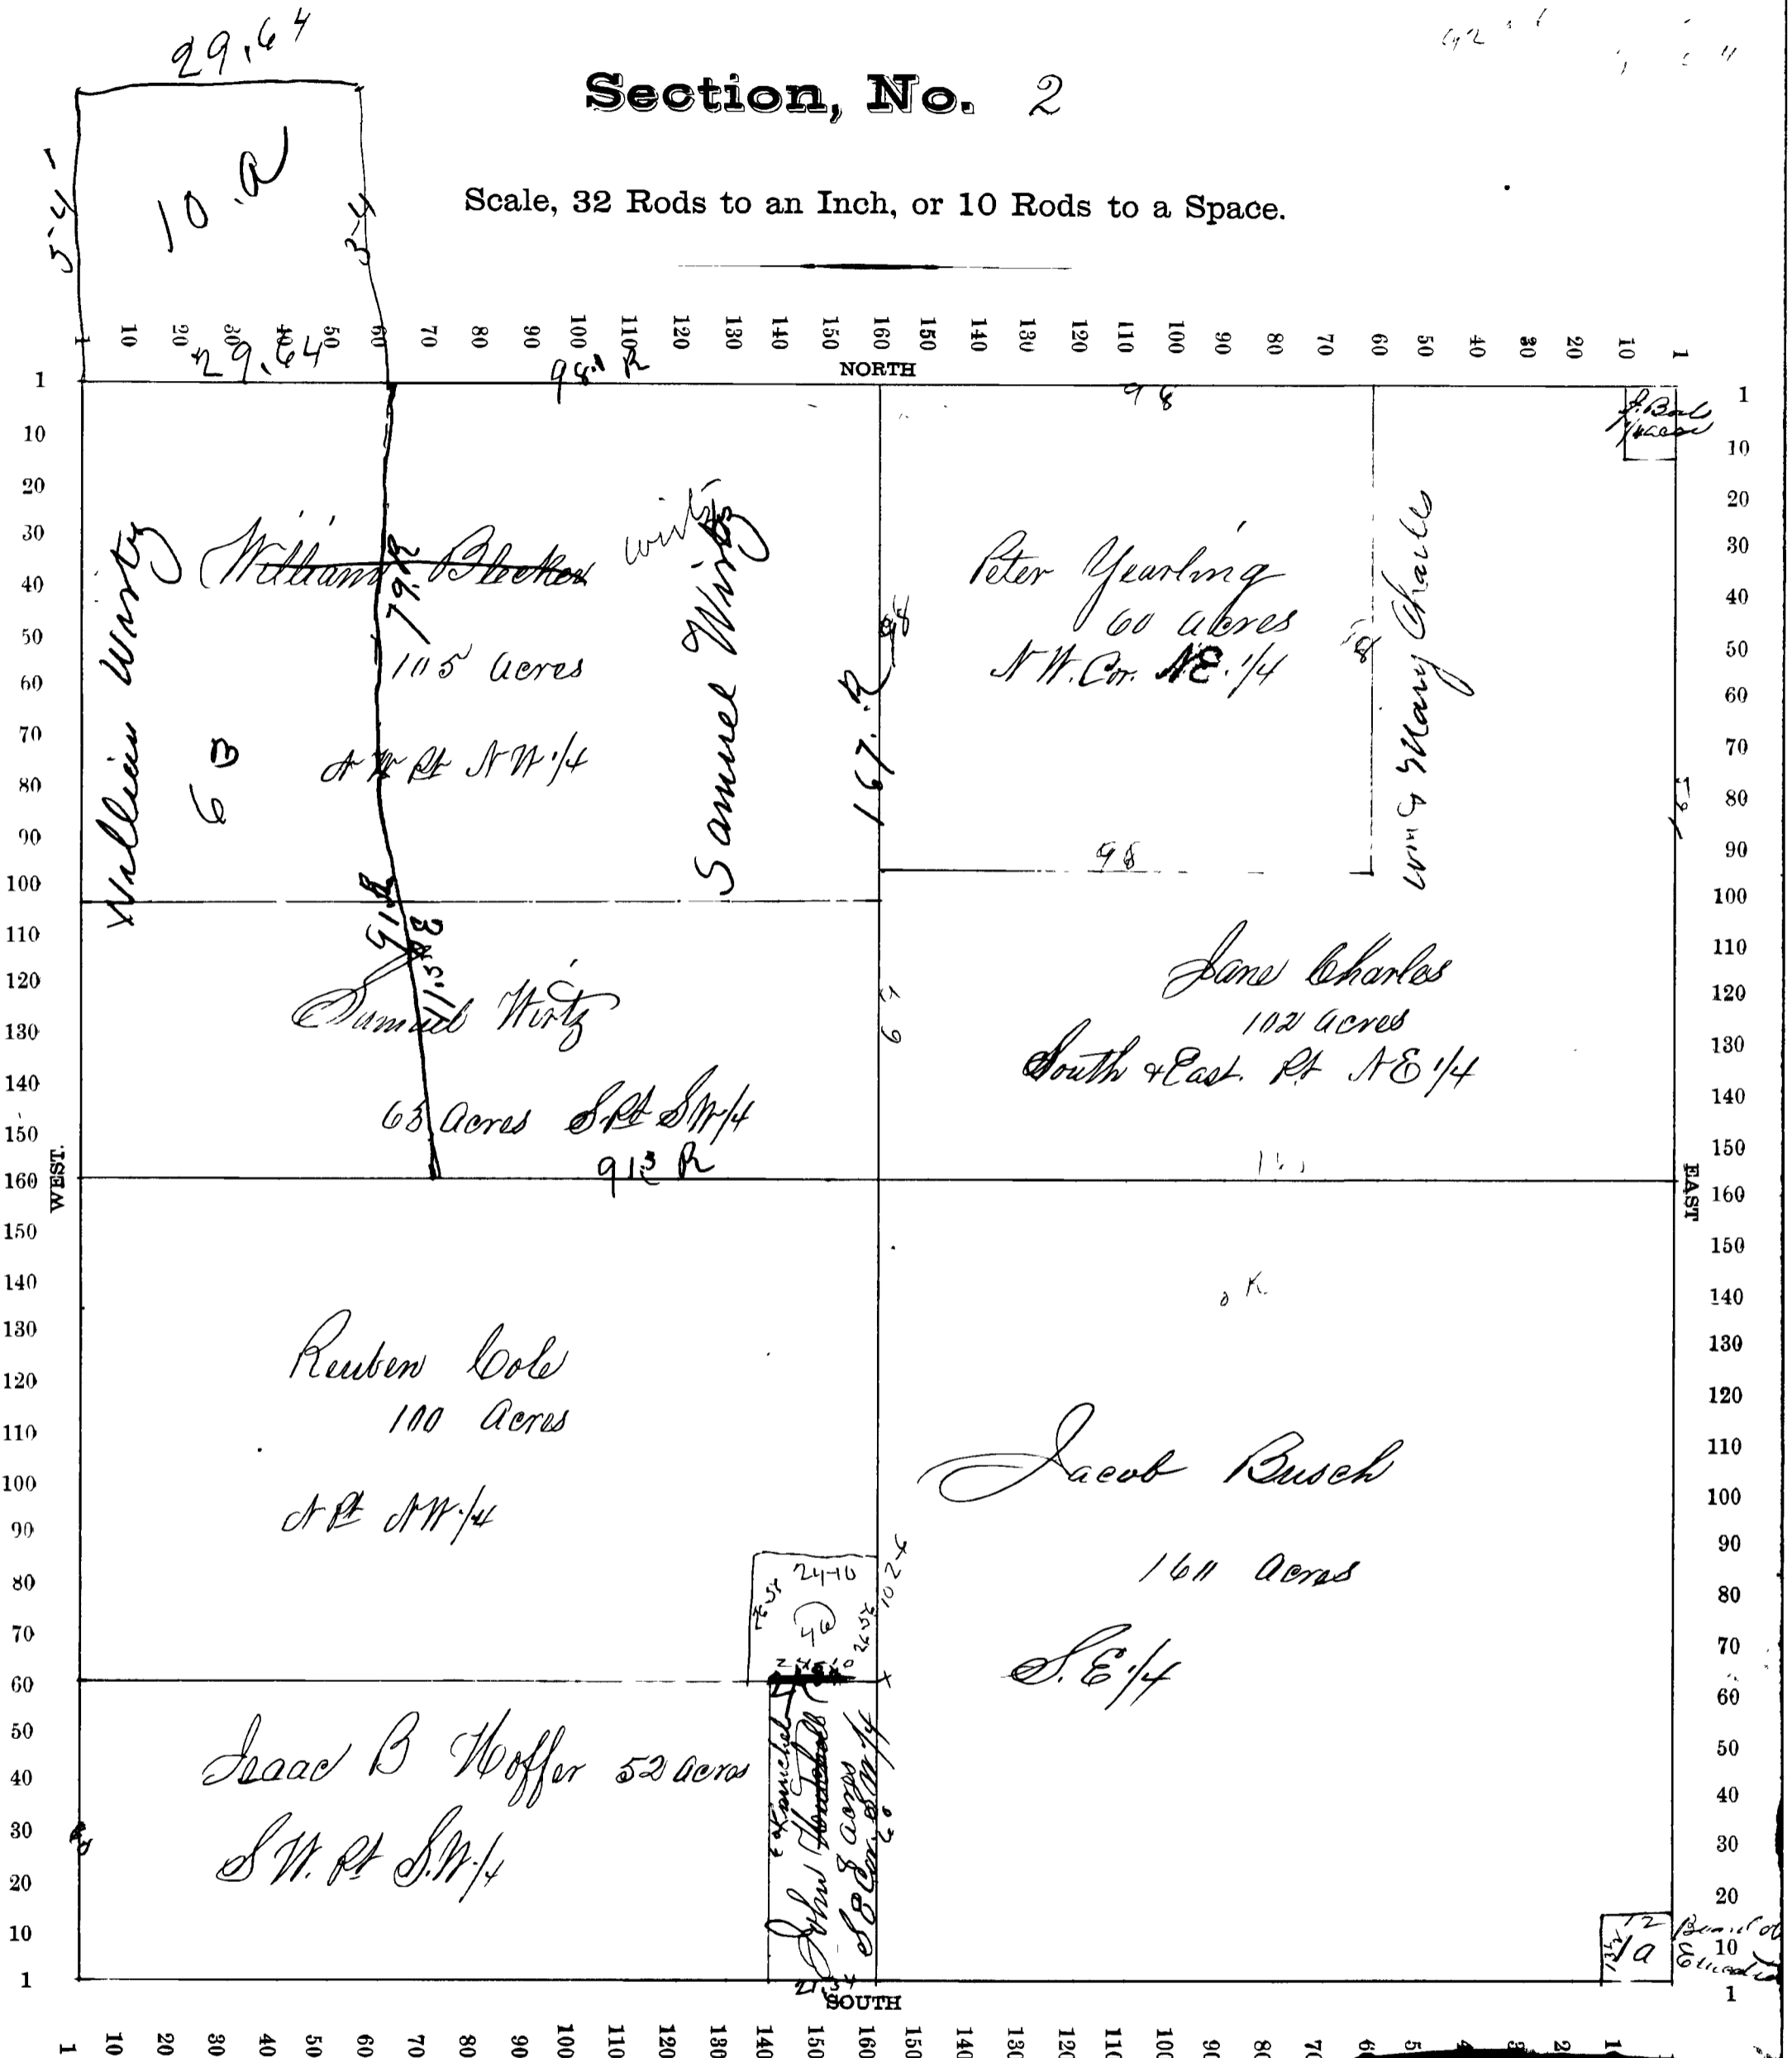 29.64
Section, No. 2
10.a
5-4
5-4
Scale, 32 Rods to an Inch, or 10 Rods to a Space.
1 10 20 30 40 50 60 70 80 90 100 110 120 130 140 150 160 150 140 130 120 110 100 90 80 70 60 50 40 30 20 10 1
29.64
98.1 R
NORTH
98
1 10 20 30 40 50 60 70 80 90 100 110 120 130 140 150 160 150 140 130 120 110 100 90 80 70 60 50 40 30 20 10 1
WEST.
William Wirtz
63
William Blecker
79.R
105 acres
N W Pt N W 1/4
Wirtz
Samuel Wirtz
98
167.R
Peter Yearling
60 acres
N W. Cor. N.E. 1/4
98
98
Mary Charles
91.R
11.5
Samuel Wirtz
63 Acres S. Pt S W 1/4
91.3 R
Jane Charles
102 acres
South & East. Pt N E 1/4
Reuben Cole
100 Acres
N Pt N W 1/4
OK
Jacob Busch
160 acres
S.E 1/4
24-10
26.52
24-10
102-6
Isaac B Hoffer 52 acres
S W. Pt S.W 1/4
John
8 acres
S E Cor. S W 1/4
21.34
12
1a
Board of
1 10 20 30 40 50 60 70 80 90 100 110 120 130 140 150 160 150 140 130 120 110 100 90 80 70 60 50 40 30 20 10 1
EAST
SOUTH
1 10 20 30 40 50 60 70 80 90 100 110 120 130 140 150 160 150 140 130 120 110 100 90 80 70